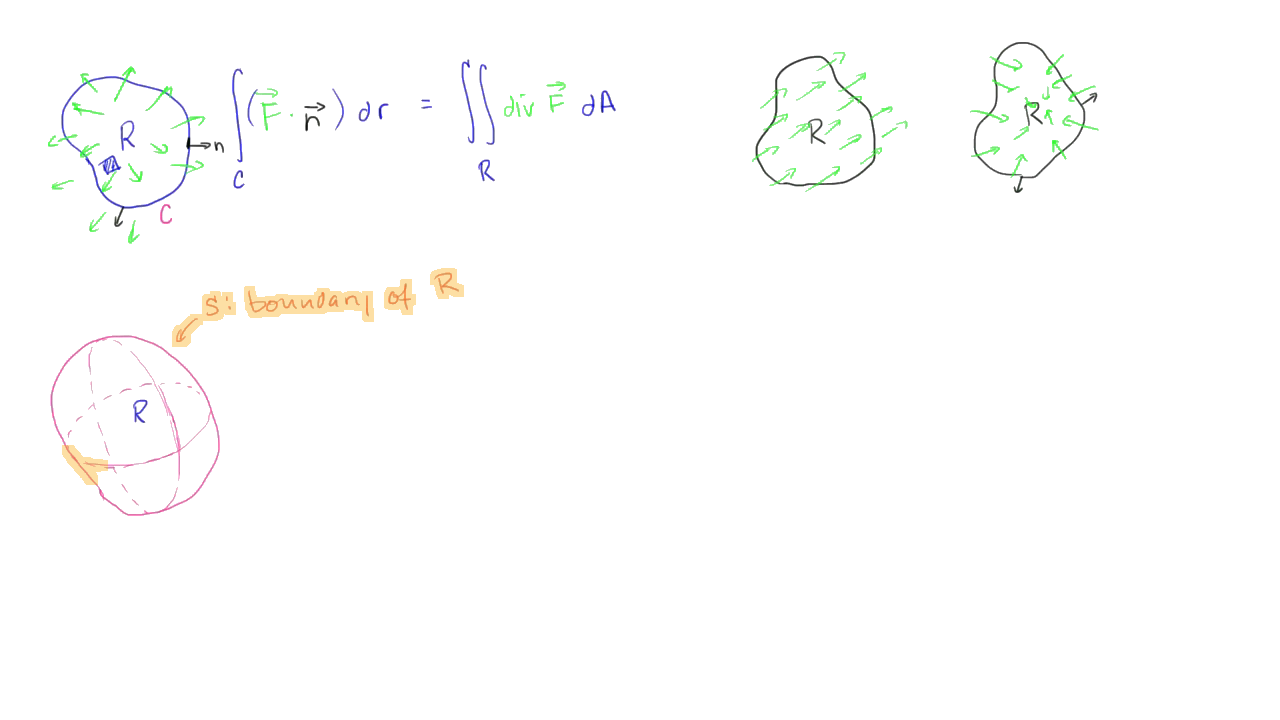 R n C
∫_C (F⃗ · n⃗) dr = ∬_R div F⃗ dA
R
R
S: boundary of R
R